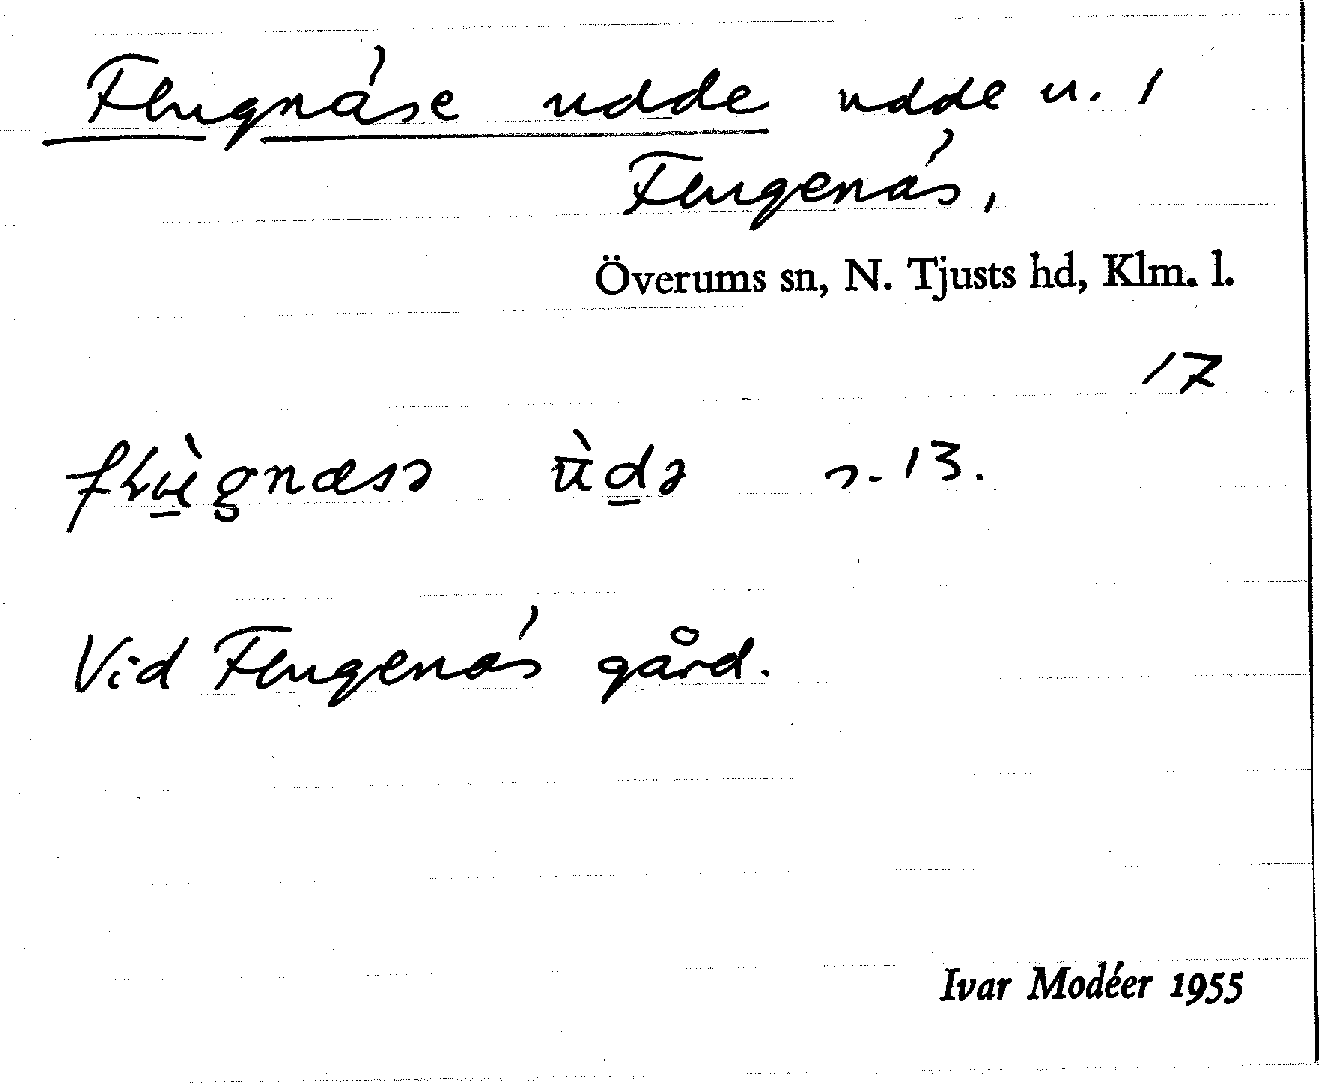 Flugnäse udde udde u. 1
Flugenäs,
Överums sn, N. Tjusts hd, Klm. l.
17
s. 13.
Vid Flugenäs gård.
Ivar Modéer 1955